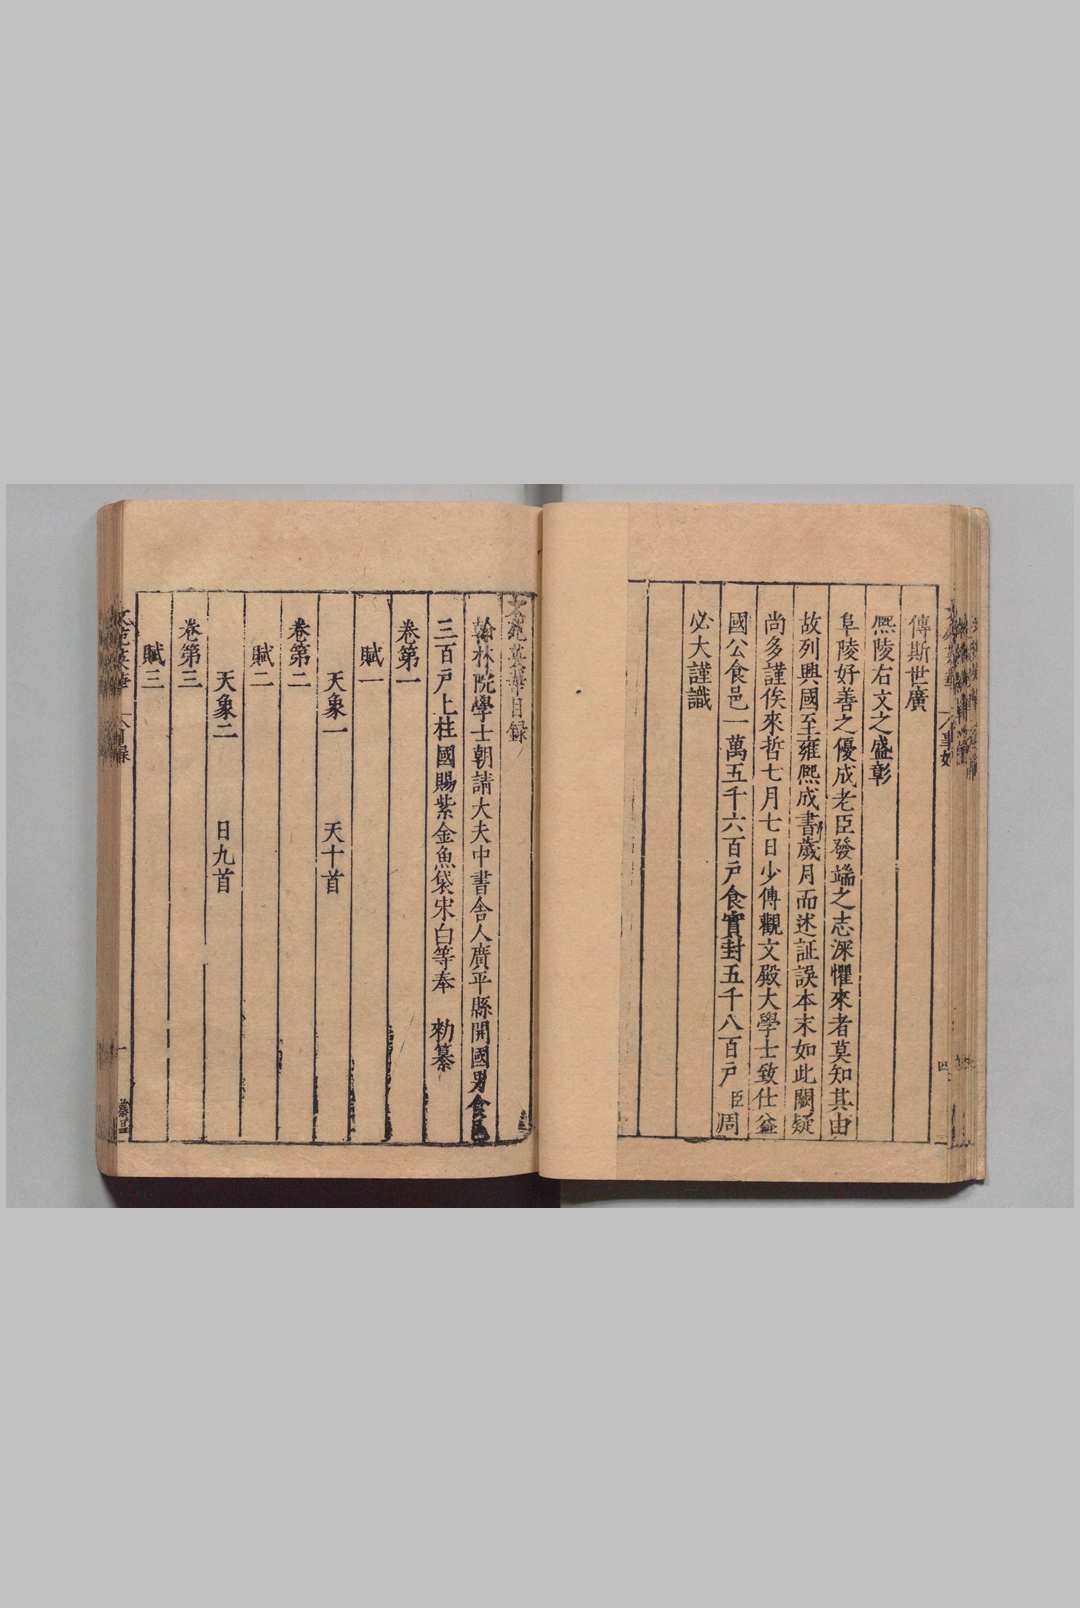 傳斯世廣
熈陵右文之盛彰
阜陵好善之優成老臣發端之志深懼來者莫知其由
故列興國至雍熈成書歲月而述証誤本末如此闕疑
尚多謹俟來哲七月七日少傅觀文殿大學士致仕益
國公食邑一萬五千六百戶食實封五千八百戶臣周
必大謹識
文苑英華目録
翰林院學士朝請大夫中書舍人廣平縣開國男食邑
三百戶上柱國賜紫金魚袋宋白等奉 勑纂
卷第一
賦一
天象一 天十首
卷第二
賦二
天象二 日九首
卷第三
賦三
文苑英華 目録 一